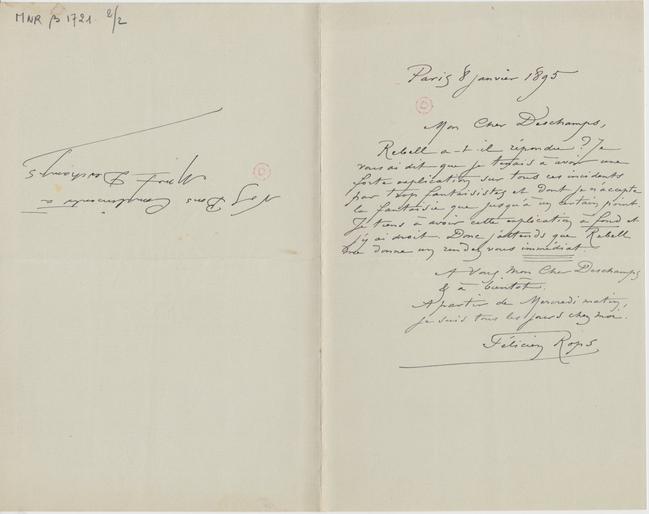 MNR β 1721 2/2
Paris 8 janvier 1895
Mon Cher Deschamps,
Rebell a-t-il répondu? Je
vous ai dit que je tenais à avoir une
forte explication sur tous ces incidents
par trop fantaisistes et dont je n'accepte
la fantaisie que jusqu'à un certain point.
Je tiens à avoir cette explication à fond et
j'y ai droit. Donc j'attends que Rebell
me donne un rendez vous immédiat.
A Vous mon Cher Deschamps
& à bientôt.
A partir de Mercredi matin,
je suis tous les jours chez moi.
Félicien Rops
Nos Bons Compliments à
Deschamps